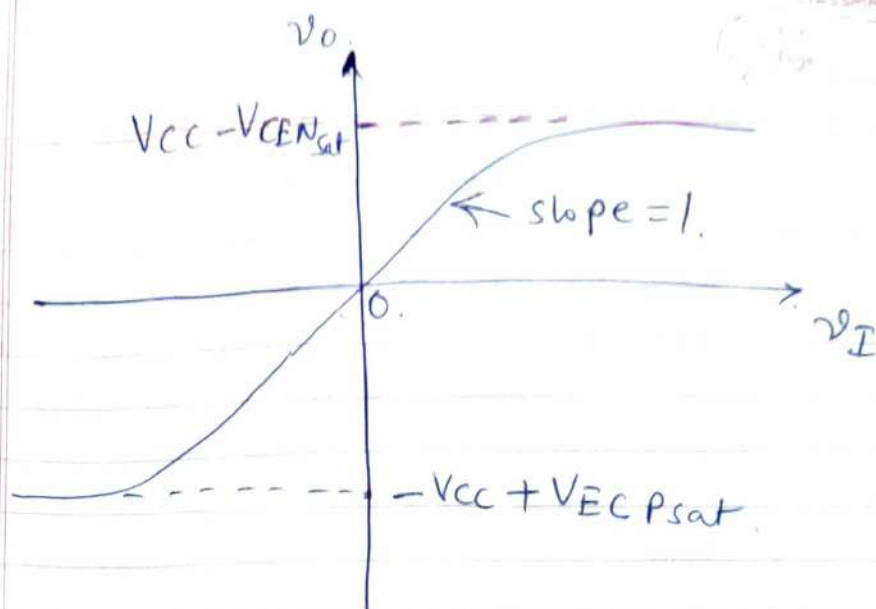 vo
VCC - VCENsat
slope = 1.
0.
vI
- VCC + VECPsat